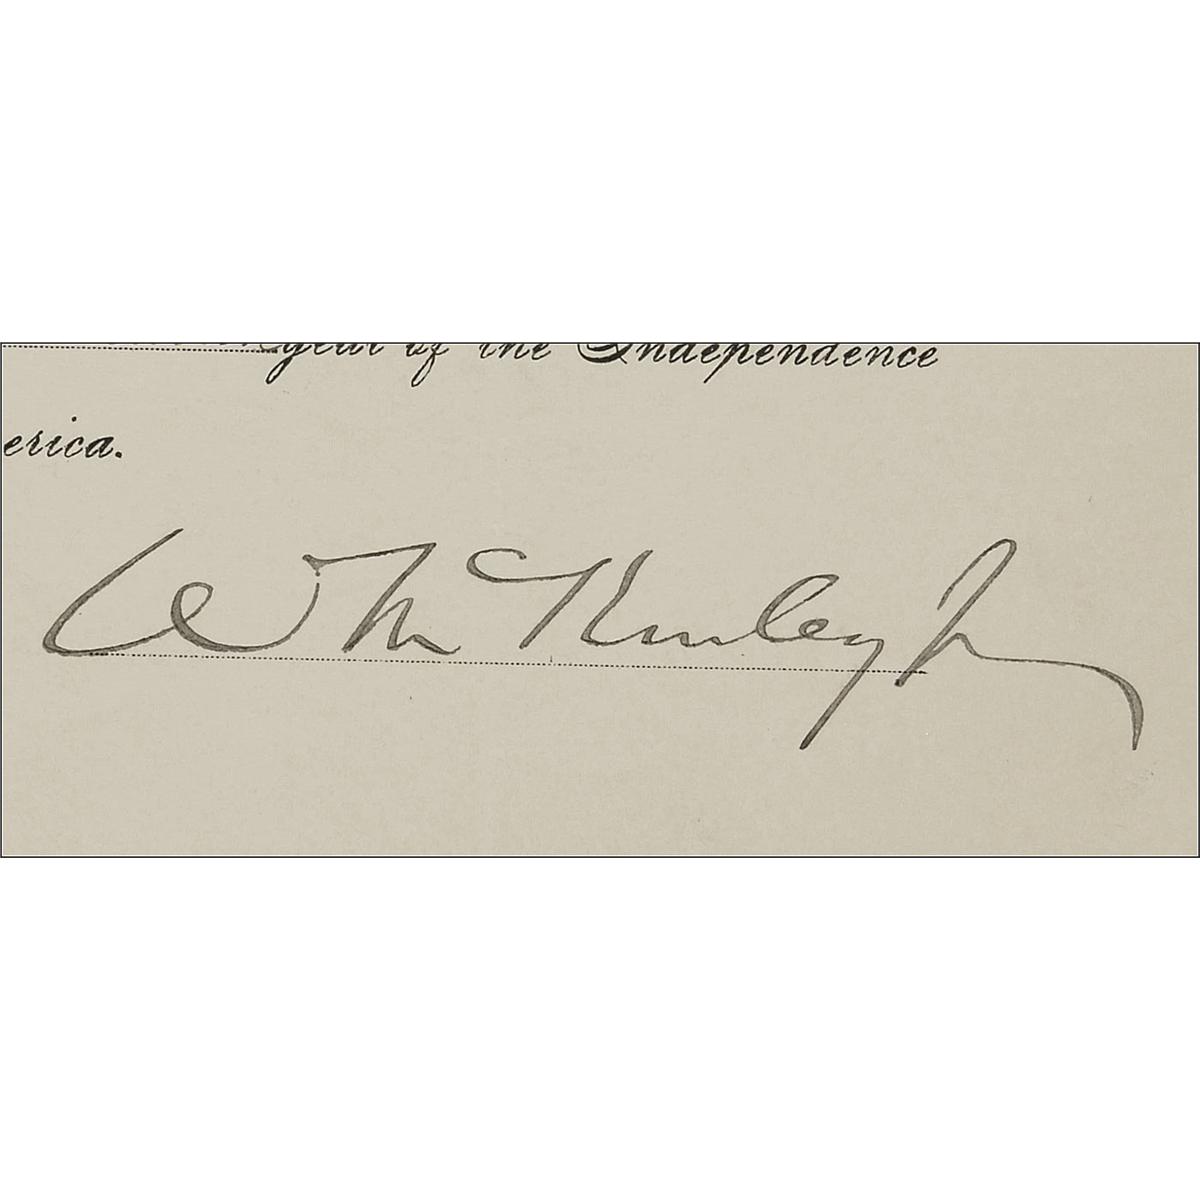 year of the Independence
erica.
William McKinley